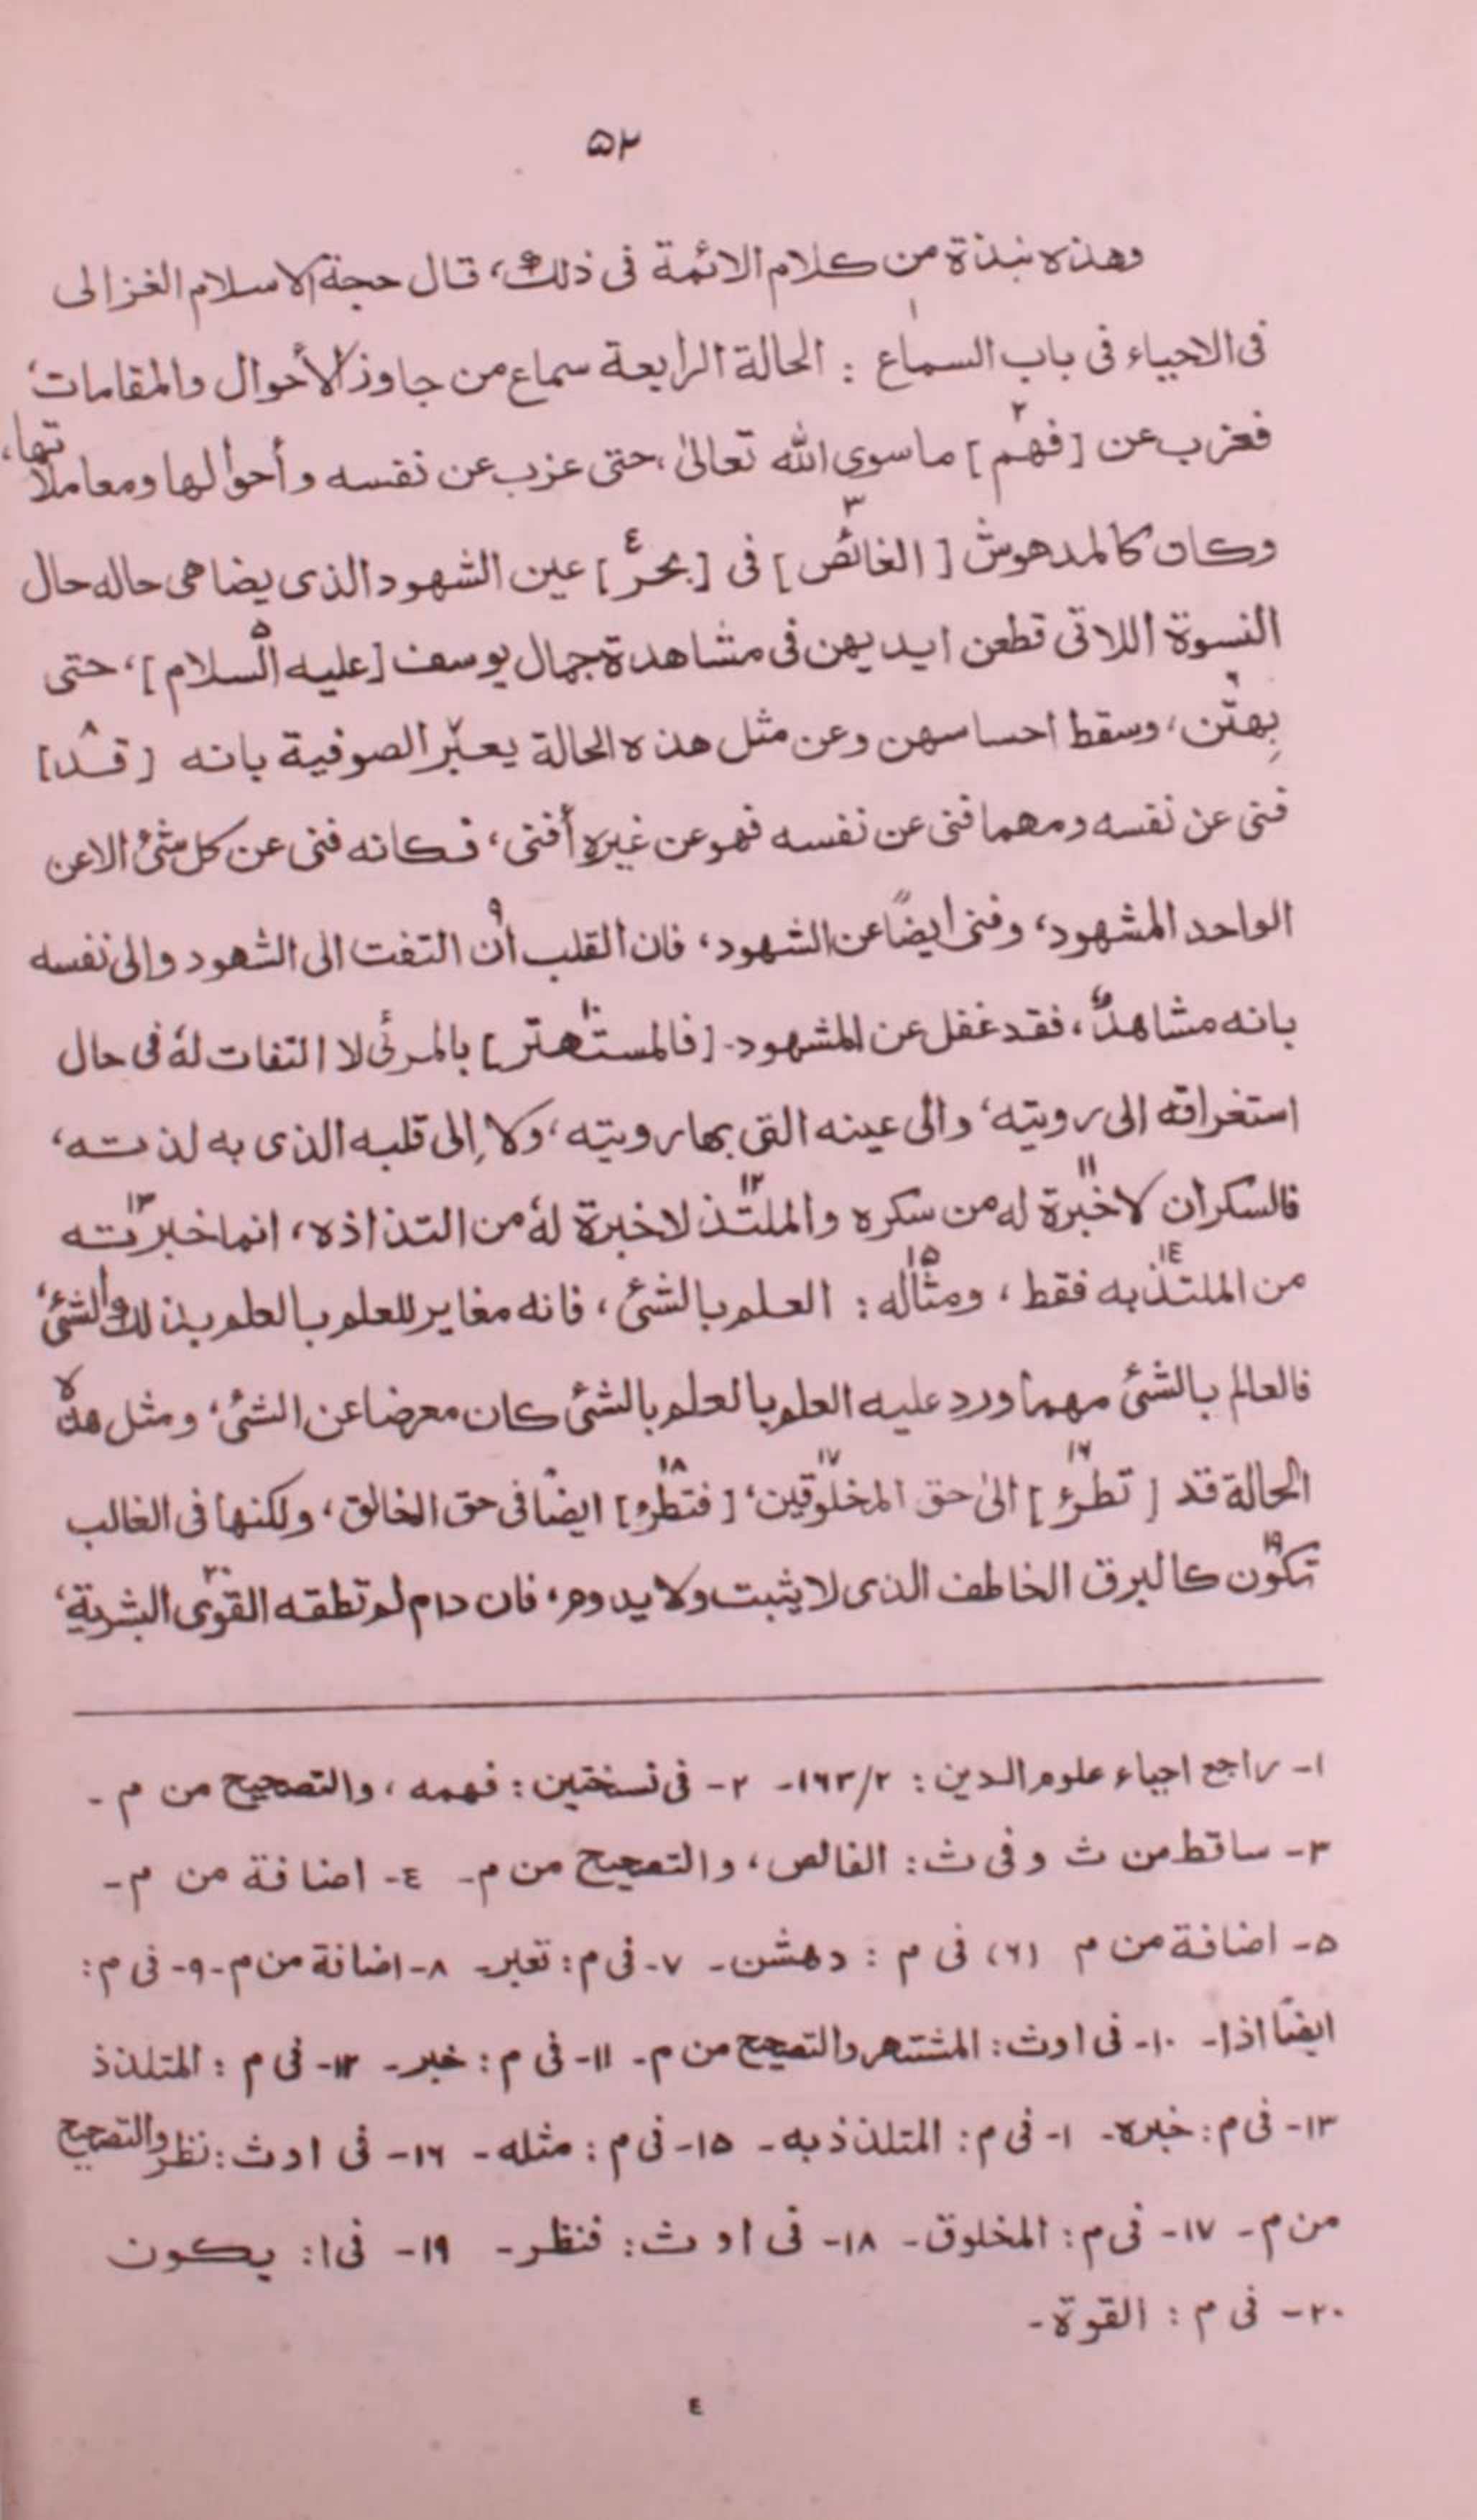 ۵۲
وهذه نبذة من كلام الائمة فى ذلك، قال حجة الاسلام الغزالى
فى الاحياء فى باب السماع١ : الحالة الرابعة سماع من جاوز الأحوال والمقامات،
فعزب عن [فهم٢] ما سوى الله تعالىٰ، حتى عزب عن نفسه وأحوالها ومعاملاتها،
وكان كالمدهوش [الغائص٣] فى [بحر٤] عين الشهود الذى يضاهى حاله حال
النسوة اللاتى قطعن ايديهن فى مشاهدة جمال يوسف [عليه السلام٥]، حتى
بِهتن٦، وسقط احساسهن وعن مثل هذه الحالة يعبّر٧ الصوفية بانه [قد٨]
فنى عن نفسه ومهما فنى عن نفسه فهو عن غيرهِ أفنى، فكانه فنى عن كل شئ الاعن
الواحد المشهود، وفنى ايضًا عن الشهود، فان القلب ان٩ التفت الى الشهود والى نفسه
بانه مشاهد، فقد غفل عن المشهود۔ [فالمستهتر١٠] بالمرئى لا التفات لهٗ فى حال
استغراقه الى رويته، والى عينه التى بها رويته، ولا إلى قلبه الذى به لذته،
فالسكران لا خبرة١١ له من سكره والملتذ١٢ لاخبرة لهٗ من التذاذه، انما خبرته١٣
من الملتذ١٤ به فقط، ومثاله١٥ : العلم بالشئ، فانه مغاير للعلم بالعلم بذلك الشئ،
فالعالم بالشئ مهما ورد عليه العلم بالعلم بالشئ كان معرضا عن الشئ، ومثل هذه
الحالة قد [تطرء١٦] الىٰ حق المخلوقين١٧، [فتطرء١٨] ايضًا فى حق الخالق، ولكنها فى الغالب
تكون١٩ كالبرق الخاطف الذى لا يثبت ولا يدوم، فان دام لم تطقه القوى٢٠ البشرية،
١- راجع احياء علوم الدين : ٢/١٦٣- ٢- فى نسختين : فهمه، والتصحيح من م -
٣- ساقط من ث وفى ث : الفالص، والتصحيح من م- ٤- اضافة من م-
٥- اضافة من م (٦) فى م : دهشن- ٧- فى م : تعبر- ٨- اضافة من م- ٩- فى م :
ايضًا اذا- ١٠- فى اوث : المشتهر والتصحيح من م- ١١- فى م : خبر- ١٢- فى م : المتلذذ
١٣- فى م : خبره- ١- فى م : المتلذذ به- ١٥- فى م : مثله- ١٦- فى اوث : نظر والتصحيح
من م- ١٧- فى م : المخلوق- ١٨- فى اوث : فنظر- ١٩- فى ا : يكون
٢٠- فى م : القوة-
٤